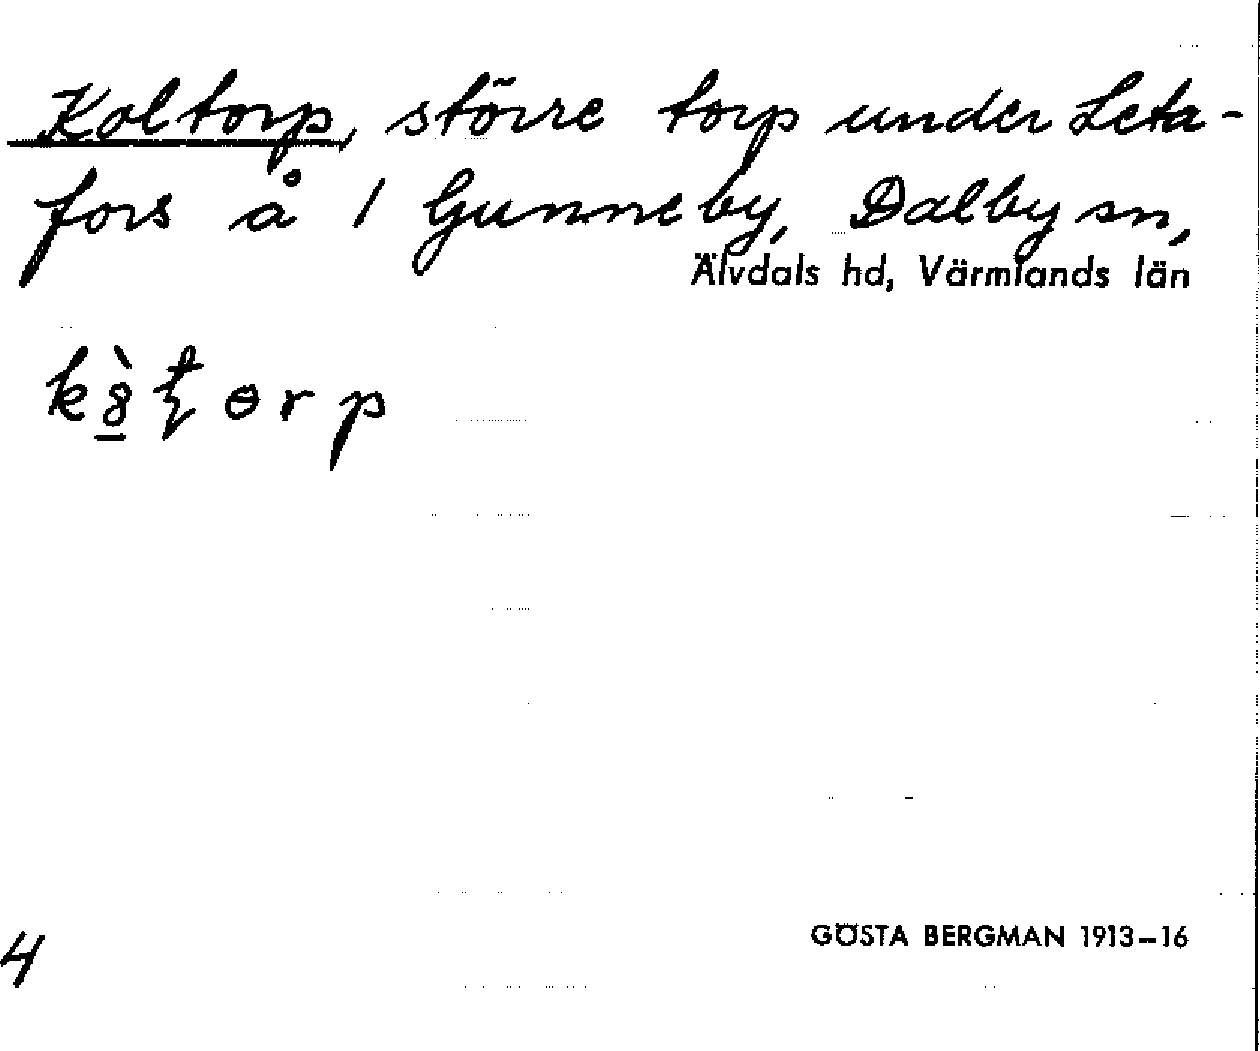 Koltorp, större torp under Leta-
fors å 1 Gunneby, Dalby sn,
Älvdals hd, Värmlands län
GÖSTA BERGMAN 1913–16
4